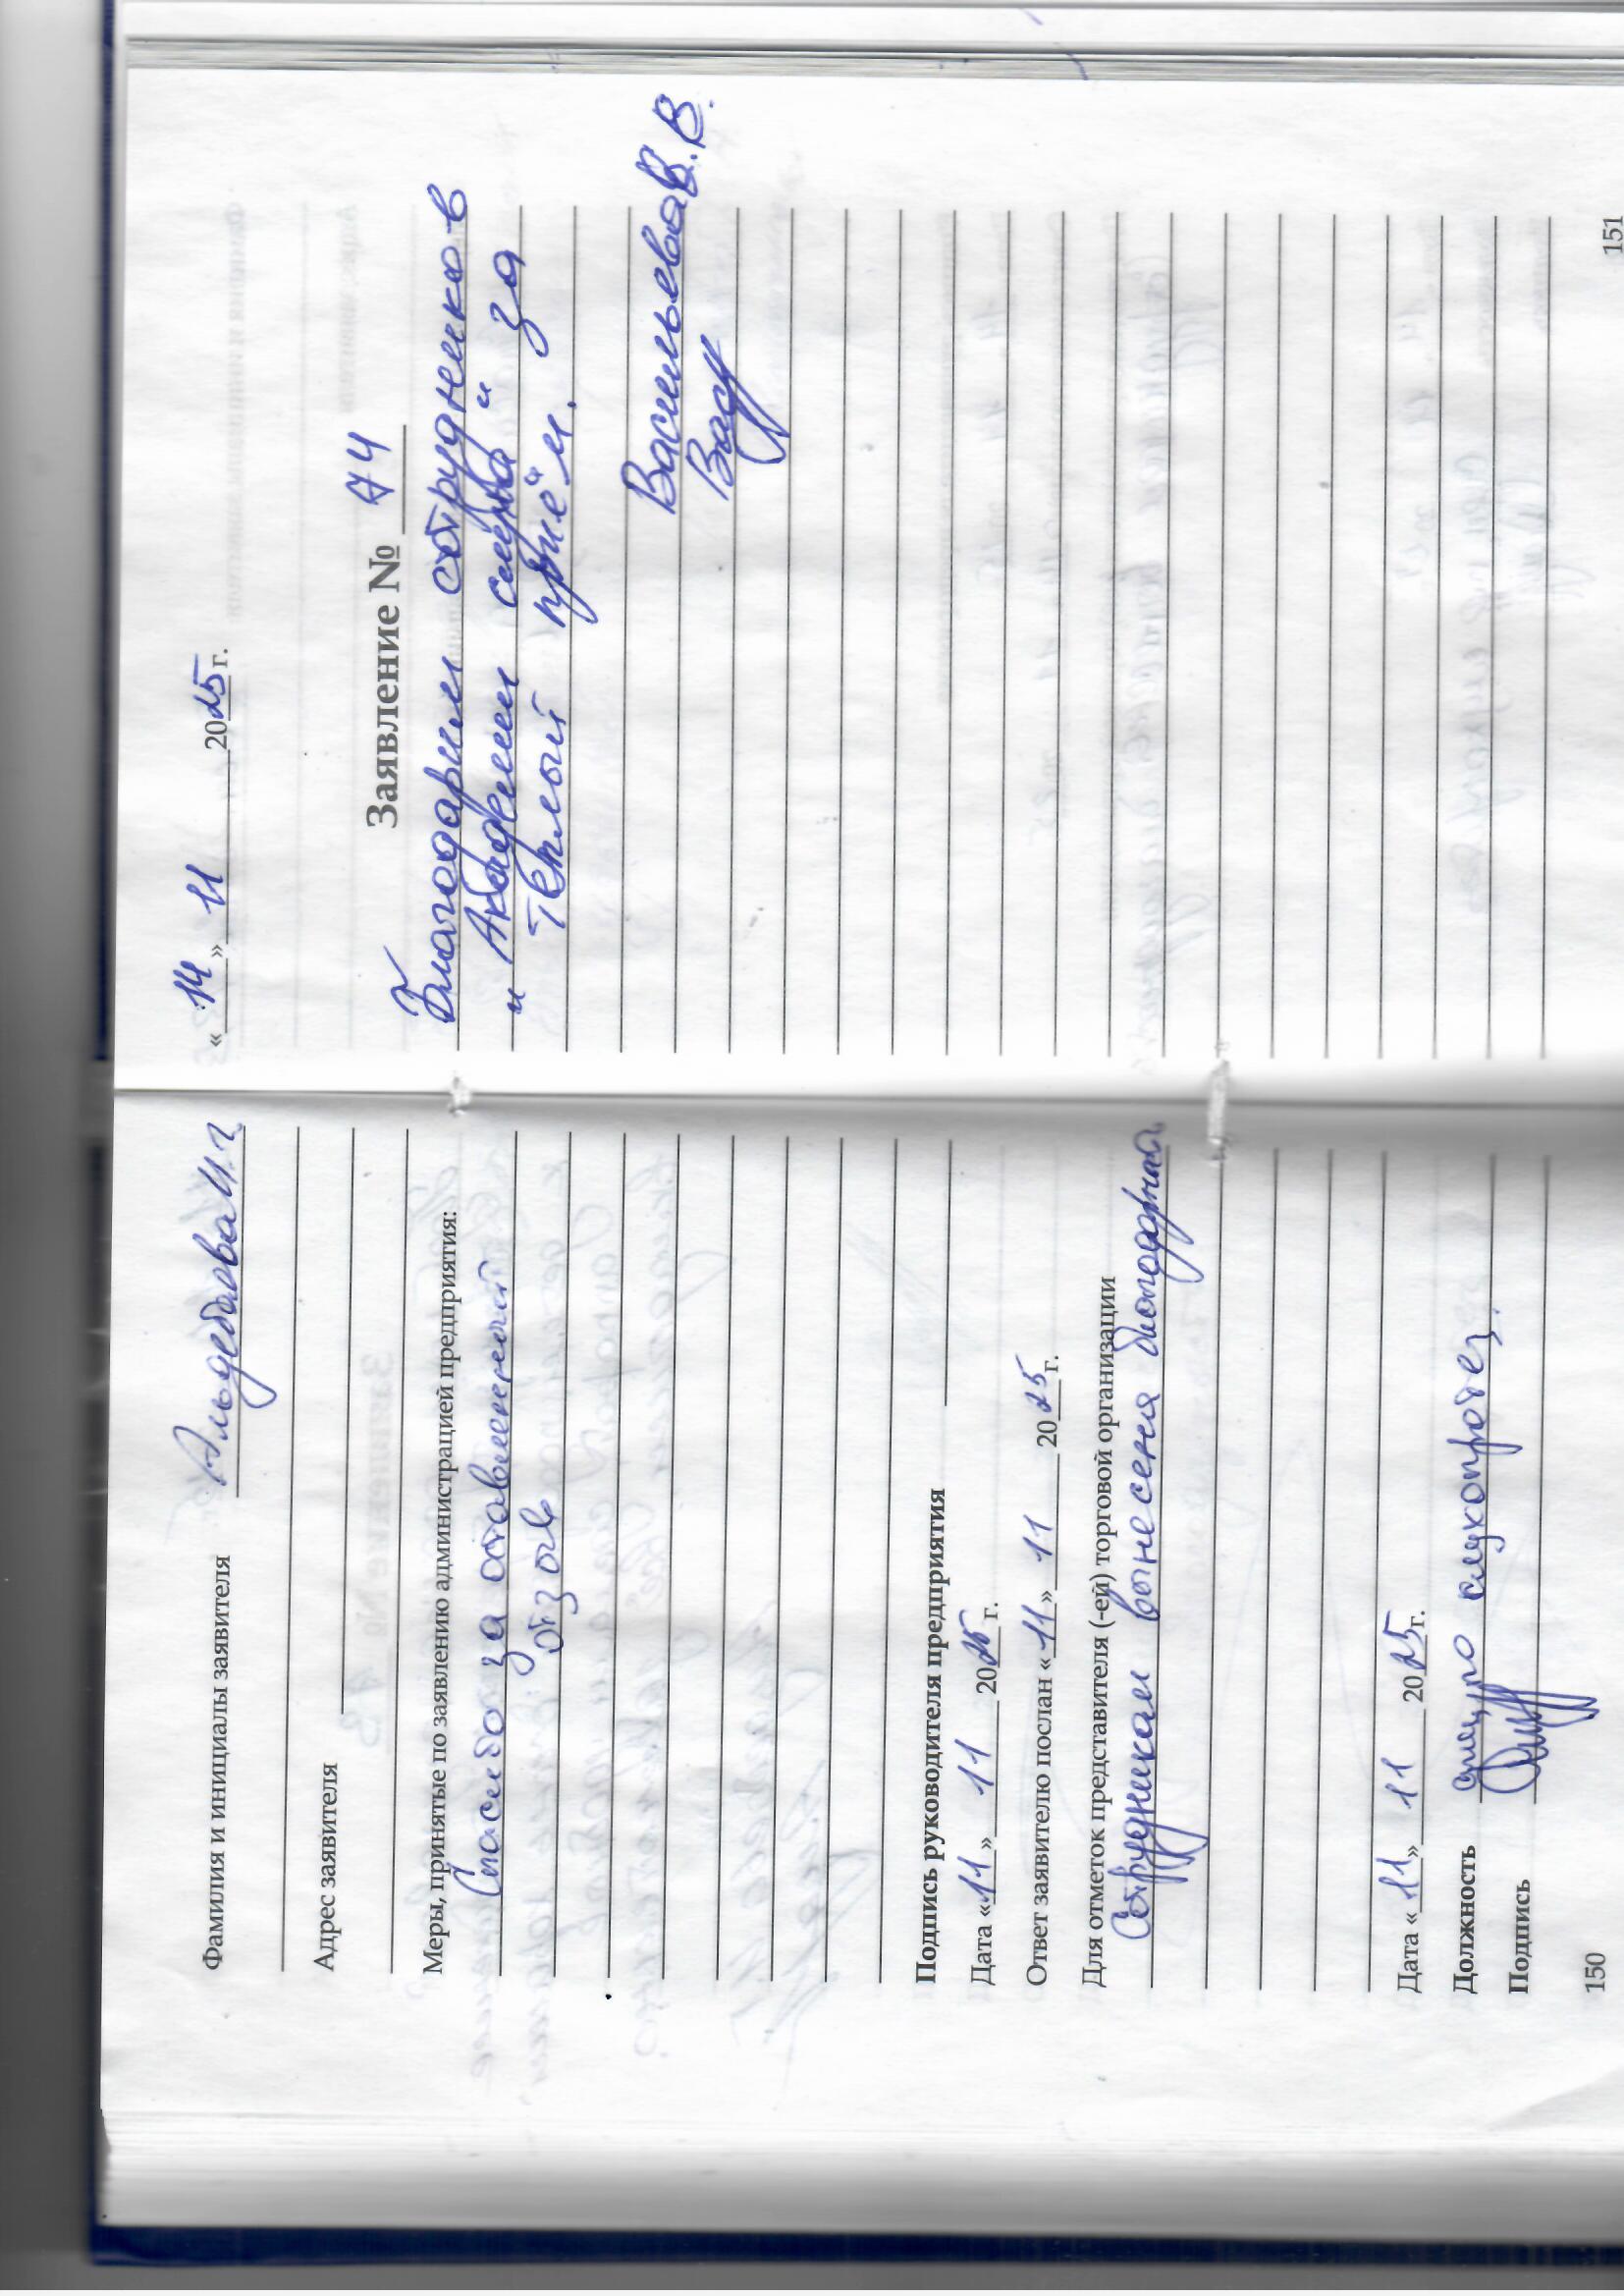 Фамилия и инициалы заявителя Альдебаова И.г
Адрес заявителя
Меры, принятые по заявлению администрацией предприятия:
Спасибо за оставленный
отзыв
Подпись руководителя предприятия
Дата «11» 11 2025 г.
Ответ заявителю послан «11» 11 2025 г.
Для отметок представителя (-ей) торговой организации
Сотрудникам вынесена благодарная
Дата «11» 11 2025 г.
Должность слухопротез.
Подпись
150
«14» 11 2025 г.
Заявление № 74
Благодарим сотрудников
и Академии слуха за
тёплый приём.
Васильева В.В.
151